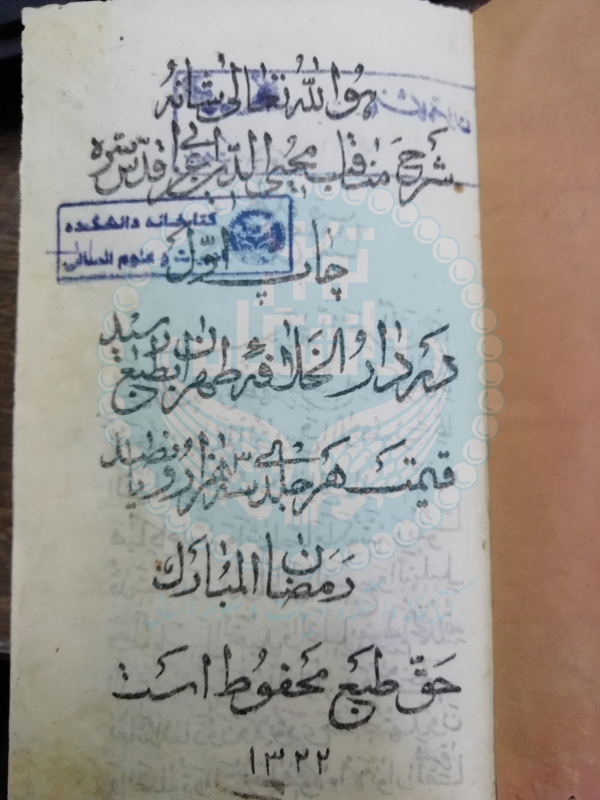 هُوَاللهُ تَعٰالیٰ شَانُهُ
شرح مناقب محیی الدین اعرابی قدّس سرّه
کتابخانه دانشکده
علوم انسانی
چاپ اوّل
در دار الخلافهٔ طهران بطبع رسید
قیمت هر جلدی سه هزار و پانصد
رمضان المبارک
حقّ طبع محفوظ است
۱۳۲۲